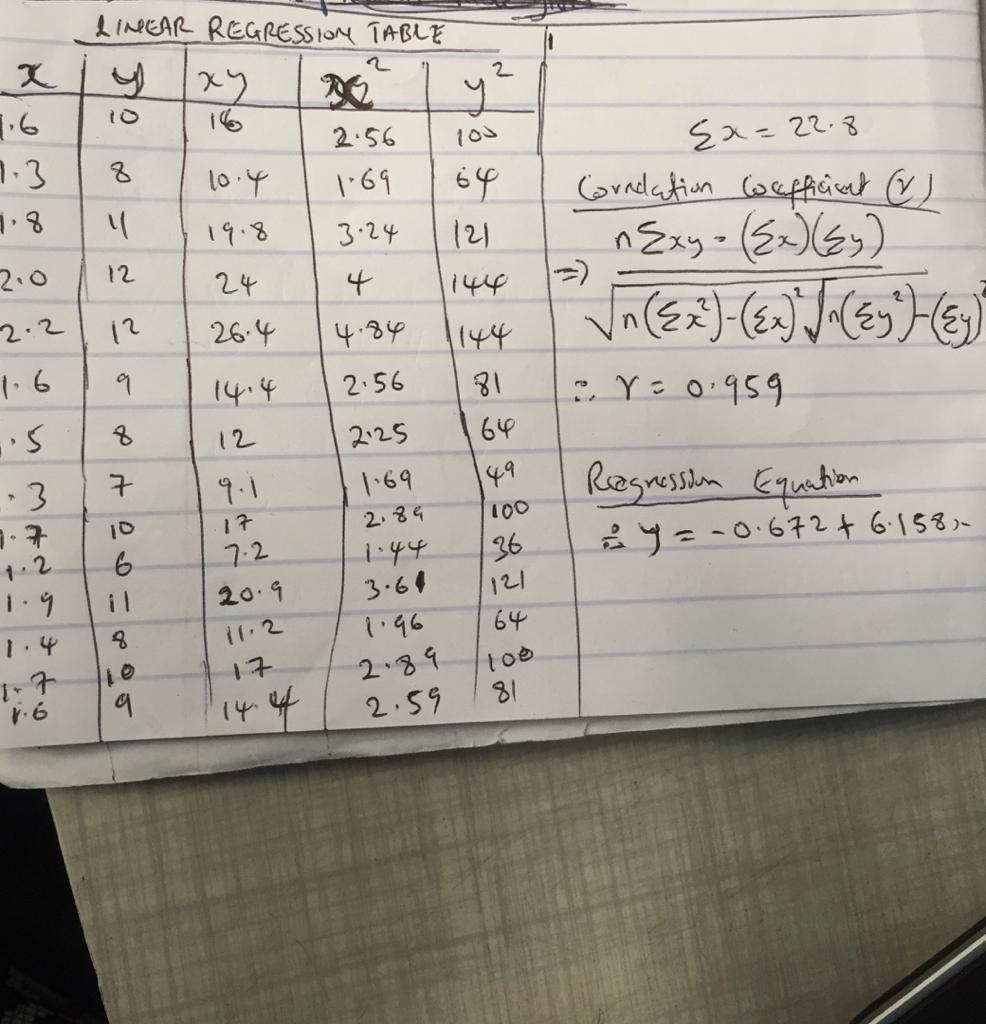 LINEAR REGRESSION TABLE
x y xy x² y²
1.6 10 16 2.56 100
1.3 8 10.4 1.69 64
1.8 11 19.8 3.24 121
2.0 12 24 4 144
2.2 12 26.4 4.84 144
1.6 9 14.4 2.56 81
.5 8 12 2.25 64
.3 7 9.1 1.69 49
1.7 10 17 2.89 100
1.2 6 7.2 1.44 36
1.9 11 20.9 3.61 121
1.4 8 11.2 1.96 64
1.7 10 17 2.89 100
1.6 9 14.4 2.59 81
Σx = 22.8
Correlation Coefficient (r)
⇒ nΣxy - (Σx)(Σy)
√n(Σx²)-(Σx)² √n(Σy²)-(Σy)²
∴ r = 0.959
Regression Equation
∴ y = -0.672 + 6.158